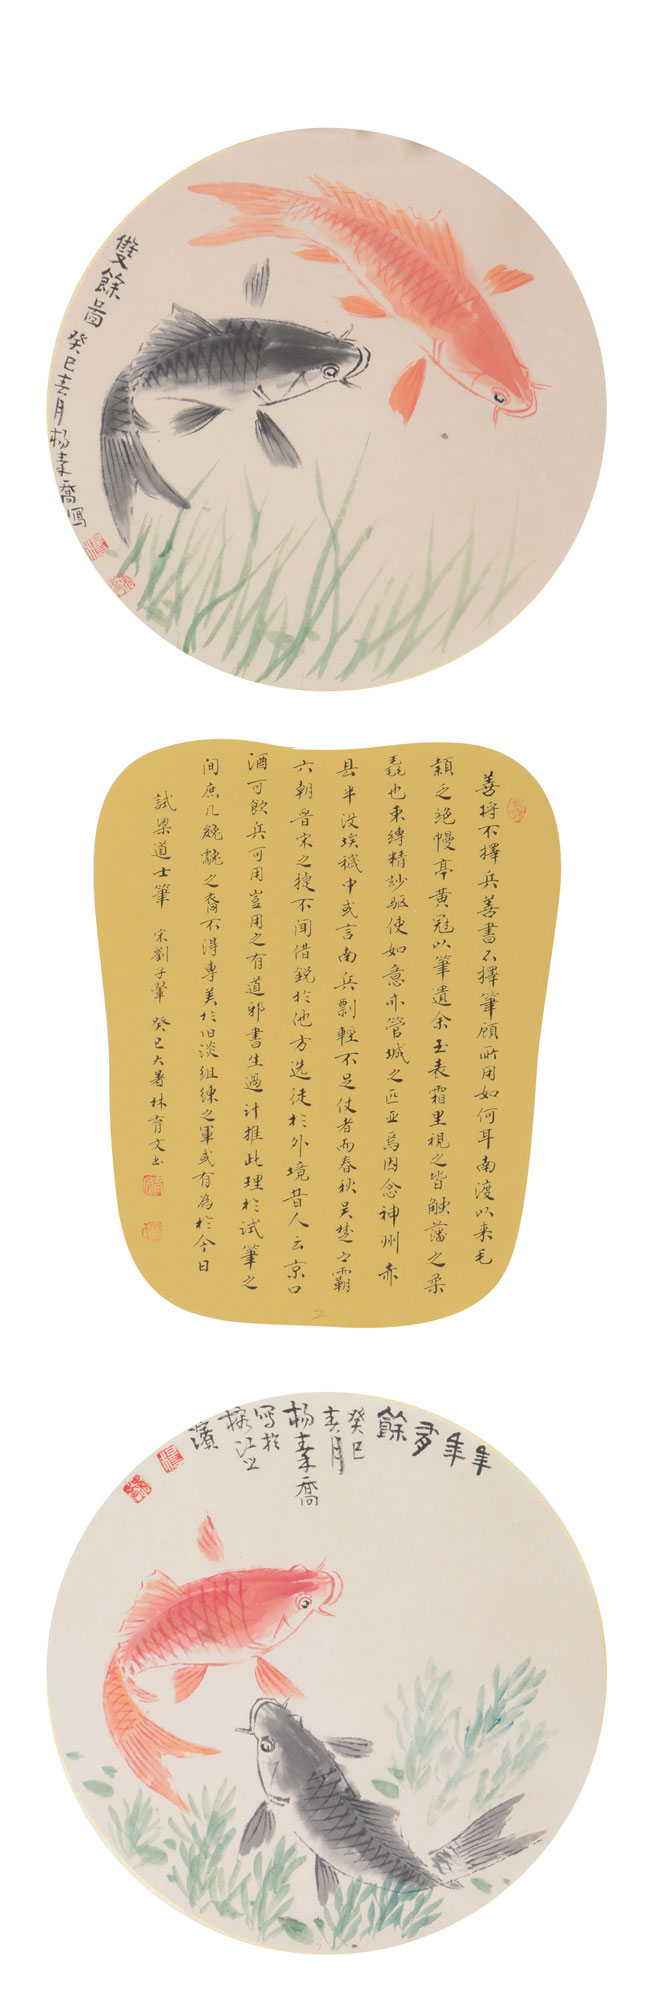 雙餘圖
癸巳春月楊素喬寫
善将不擇兵善書不擇筆顧所用如何耳南渡以来毛
穎之絶幔亭黄冠以筆遺余玉表霜里視之皆觸藩之柔
毳也束縛精妙驱使如意亦管城之匹亚焉因念神州赤
县半没埃穢中或言南兵剽輕不足仗者而春秋吴楚之霸
六朝晋宋之捷不闻借鋭於他方选徒於外境昔人云京口
酒可飲兵可用豈用之有道邪書生過计推此理於试筆之
间庶几㕙㕙之裔不得專美於旧淡组練之軍或有為於今日
試梁道士筆 宋劉子翬 癸巳大暑林育文书
年年多餘
癸巳
春月
杨素喬
写於
榕江之
濱